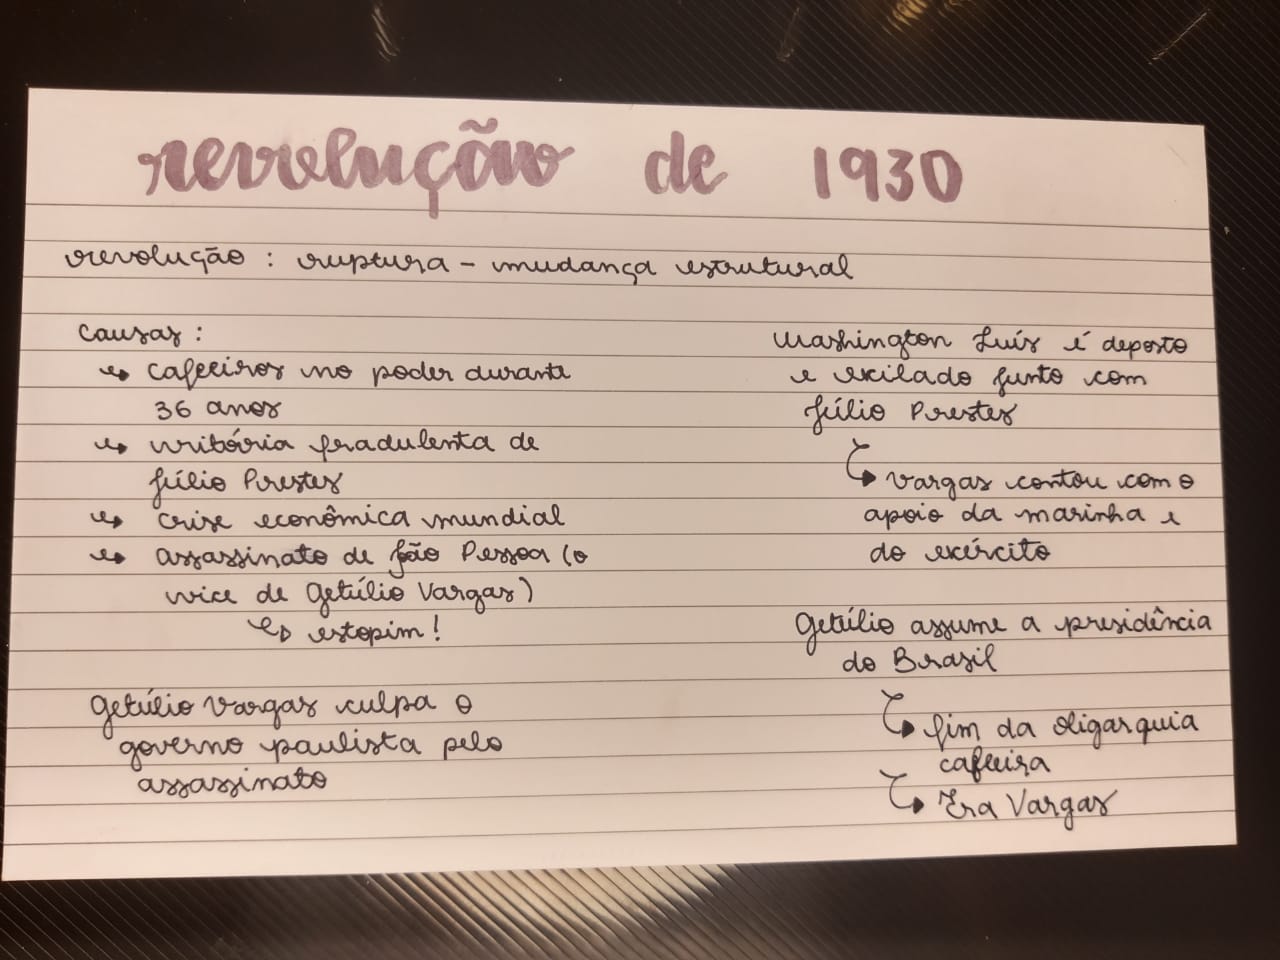 revolução de 1930
revolução : ruptura - mudança estrutural
causas :
↳ cafeeiros no poder durante
36 anos
↳ vitória fradulenta de
Júlio Prestes
↳ crise econômica mundial
↳ assassinato de João Pessoa (o
vice de Getúlio Vargas)
↳ estopim!
Getúlio Vargas culpa o
governo paulista pelo
assassinato
Washington Luís é deposto
e exilado junto com
Júlio Prestes
↳ Vargas contou com o
apoio da marinha e
do exército
Getúlio assume a presidência
do Brasil
↳ fim da oligarquia
cafeeira
↳ Era Vargas